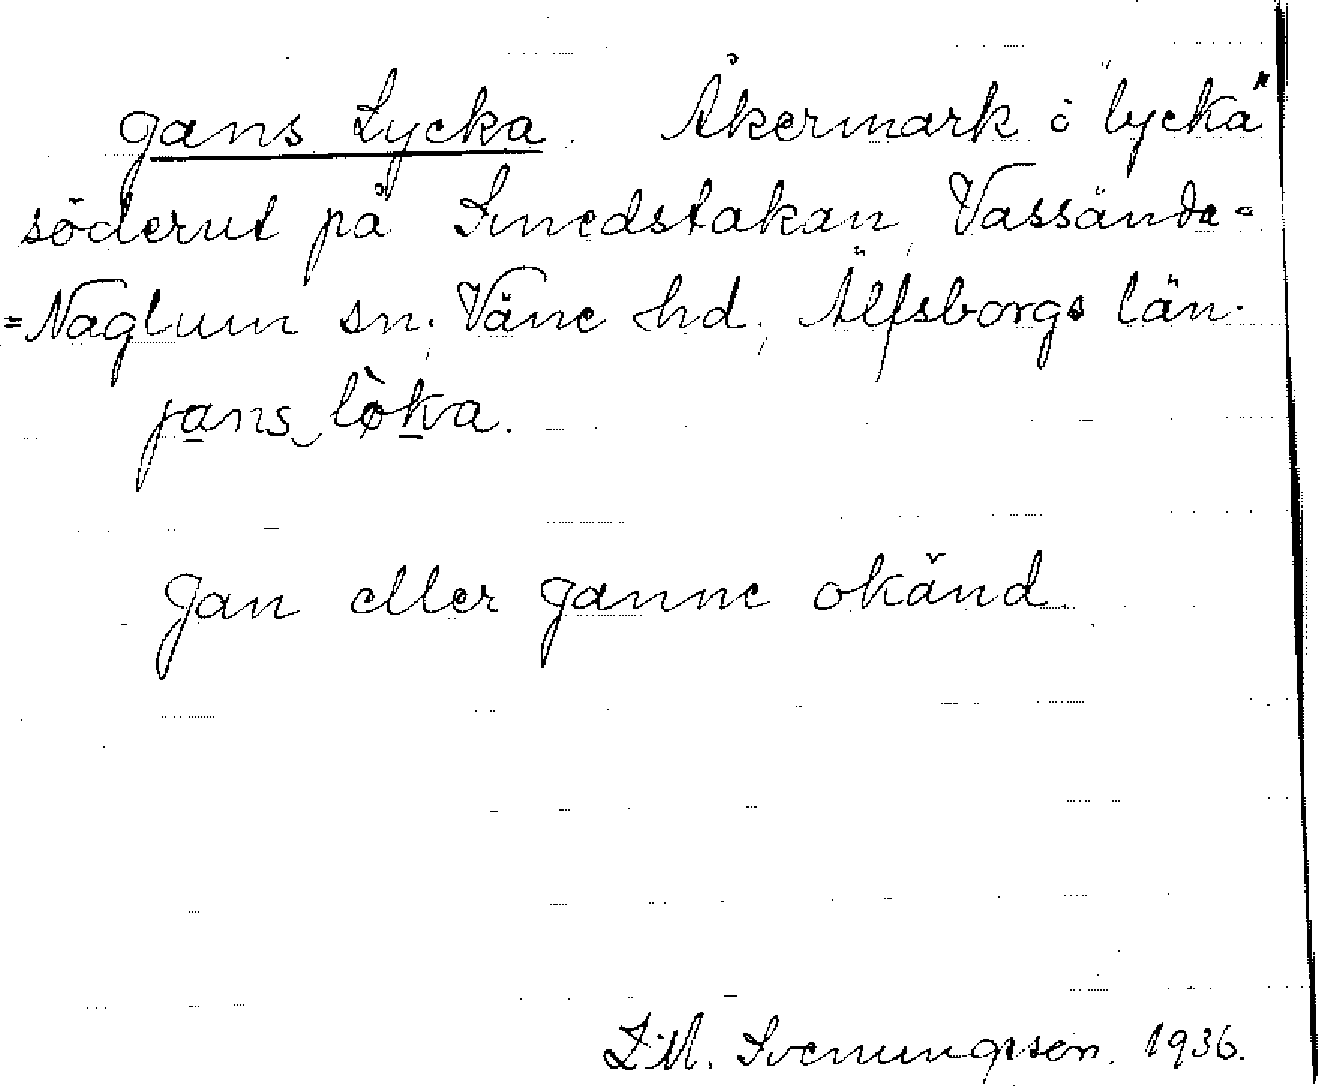 Jans Lycka. Åkermark i "lycka"
söderut på Smedstakan, Vassända-
=Naglum sn. Väne hd, Älfsborgs län.
jans lò̤ka.
Jan eller Janne okänd.
Svenungsson. 1936.